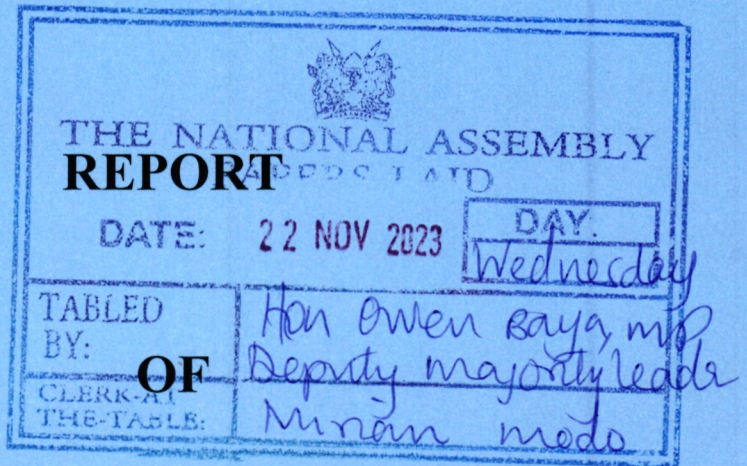 THE NATIONAL ASSEMBLY
REPORT
PAPERS LAID
DATE: 22 NOV 2023 DAY:
Wednesday
TABLED BY: Hon Owen Baya, MP
Deputy majority leader
OF
CLERK-AT
THE-TABLE: modo